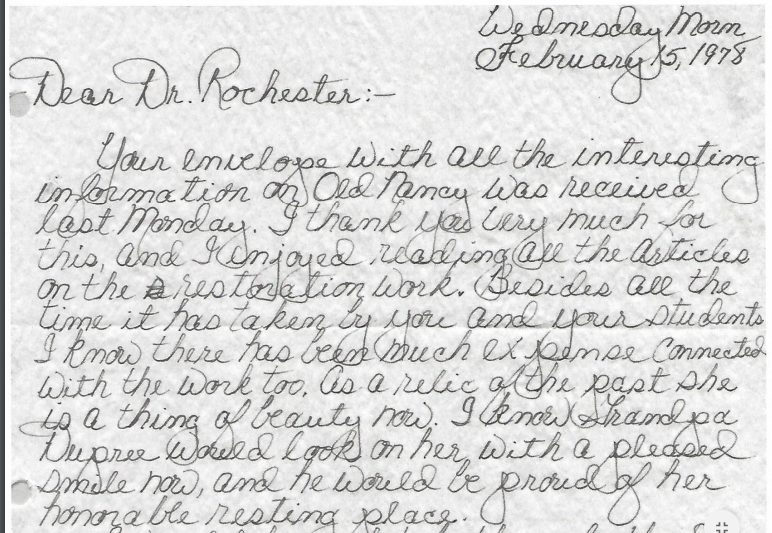 Wednesday Morn
February 15, 1978
Dear Dr. Rochester:-
Your envelope with all the interesting
information on Old Nancy was received
last Monday. I thank you very much for
this, and I enjoyed reading all the articles
on the restoration work. Besides all the
time it has taken by you and your students
I know there has been much expense connected
with the work too. As a relic of the past she
is a thing of beauty now. I know Grandpa
Dupree would look on her with a pleased
smile now, and he would be proud of her
honorable resting place.